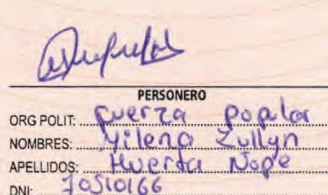 PERSONERO
ORG POLIT: Fuerza Popular
NOMBRES: Yilena Zullyn
APELLIDOS: Huerta Nope
DNI: 70510166